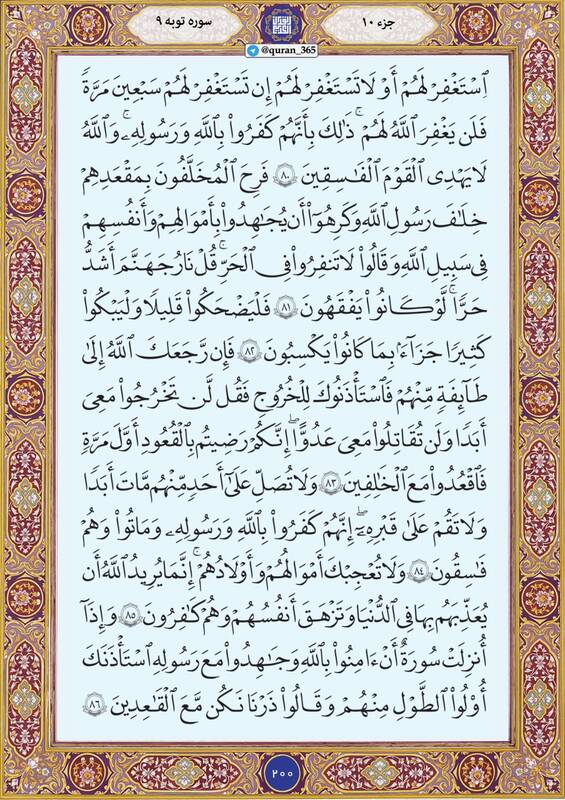 جزء ۱۰
سوره توبه ۹
@quran_365
ٱسۡتَغۡفِرۡ لَهُمۡ أَوۡ لَا تَسۡتَغۡفِرۡ لَهُمۡ إِن تَسۡتَغۡفِرۡ لَهُمۡ سَبۡعِينَ مَرَّةٗ
فَلَن يَغۡفِرَ ٱللَّهُ لَهُمۡۚ ذَٰلِكَ بِأَنَّهُمۡ كَفَرُواْ بِٱللَّهِ وَرَسُولِهِۦۗ وَٱللَّهُ
لَا يَهۡدِي ٱلۡقَوۡمَ ٱلۡفَٰسِقِينَ ٨٠ فَرِحَ ٱلۡمُخَلَّفُونَ بِمَقۡعَدِهِمۡ
خِلَٰفَ رَسُولِ ٱللَّهِ وَكَرِهُوٓاْ أَن يُجَٰهِدُواْ بِأَمۡوَٰلِهِمۡ وَأَنفُسِهِمۡ
فِي سَبِيلِ ٱللَّهِ وَقَالُواْ لَا تَنفِرُواْ فِي ٱلۡحَرِّۗ قُلۡ نَارُ جَهَنَّمَ أَشَدُّ
حَرّٗاۚ لَّوۡ كَانُواْ يَفۡقَهُونَ ٨١ فَلۡيَضۡحَكُواْ قَلِيلٗا وَلۡيَبۡكُواْ
كَثِيرٗا جَزَآءَۢ بِمَا كَانُواْ يَكۡسِبُونَ ٨٢ فَإِن رَّجَعَكَ ٱللَّهُ إِلَىٰ
طَآئِفَةٖ مِّنۡهُمۡ فَٱسۡتَـٔۡذَنُوكَ لِلۡخُرُوجِ فَقُل لَّن تَخۡرُجُواْ مَعِيَ
أَبَدٗا وَلَن تُقَٰتِلُواْ مَعِيَ عَدُوًّاۖ إِنَّكُمۡ رَضِيتُم بِٱلۡقُعُودِ أَوَّلَ مَرَّةٖ
فَٱقۡعُدُواْ مَعَ ٱلۡخَٰلِفِينَ ٨٣ وَلَا تُصَلِّ عَلَىٰٓ أَحَدٖ مِّنۡهُم مَّاتَ أَبَدٗا
وَلَا تَقُمۡ عَلَىٰ قَبۡرِهِۦٓۖ إِنَّهُمۡ كَفَرُواْ بِٱللَّهِ وَرَسُولِهِۦ وَمَاتُواْ وَهُمۡ
فَٰسِقُونَ ٨٤ وَلَا تُعۡجِبۡكَ أَمۡوَٰلُهُمۡ وَأَوۡلَٰدُهُمۡۚ إِنَّمَا يُرِيدُ ٱللَّهُ أَن
يُعَذِّبَهُم بِهَا فِي ٱلدُّنۡيَا وَتَزۡهَقَ أَنفُسُهُمۡ وَهُمۡ كَٰفِرُونَ ٨٥ وَإِذَآ
أُنزِلَتۡ سُورَةٌ أَنۡ ءَامِنُواْ بِٱللَّهِ وَجَٰهِدُواْ مَعَ رَسُولِهِ ٱسۡتَـٔۡذَنَكَ
أُوْلُواْ ٱلطَّوۡلِ مِنۡهُمۡ وَقَالُواْ ذَرۡنَا نَكُن مَّعَ ٱلۡقَٰعِدِينَ ٨٦
۲۰۰